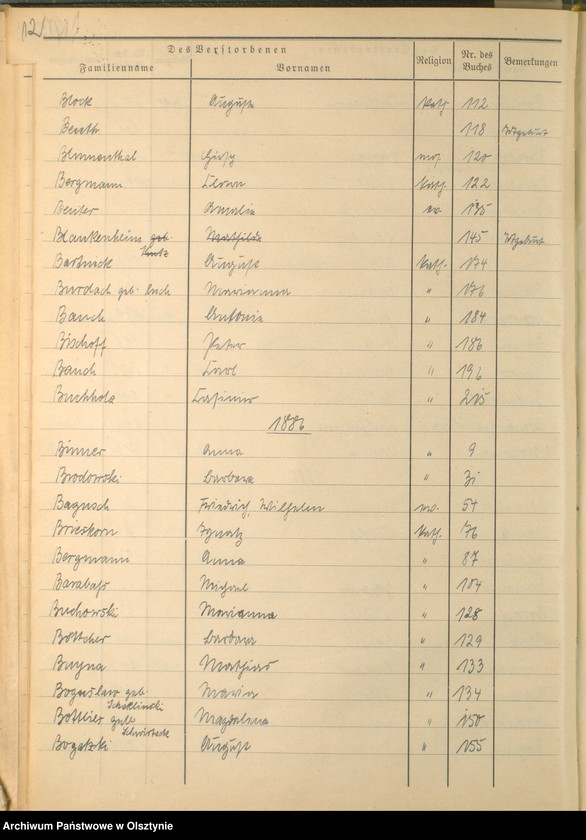 12
Des Verstorbenen
Familienname Vornamen Religion Nr. des Buches Bemerkungen
Block August kath. 112
Beuth 118 Totgeburt
Blumenthal Hirsch mos. 120
Bergmann kath. 122
Beuter Amalie ev. 135
Blankenheim geb. Mathilde 145 Totgeburt
August kath. 174
Burdach geb. Marianna " 176
Bauch Antonie " 184
Bischoff Peter " 186
Bauch Carl " 196
Buchholz Casimir " 205
1886
Binner Anna " 9
Brodowski Barbara " 31
Bagusch Friedrich, Wilhelm ev. 54
Brieskorn Ignatz kath. 76
Bergmann Anna " 87
Barabasz Michael " 104
Buchowski Marianna " 128
Böttcher Barbara " 129
Buyna Mathias " 133
Boguslaw geb. Maria " 134
Magdalena " 150
Bogatzki August " 155
Archiwum Państwowe w Olsztynie